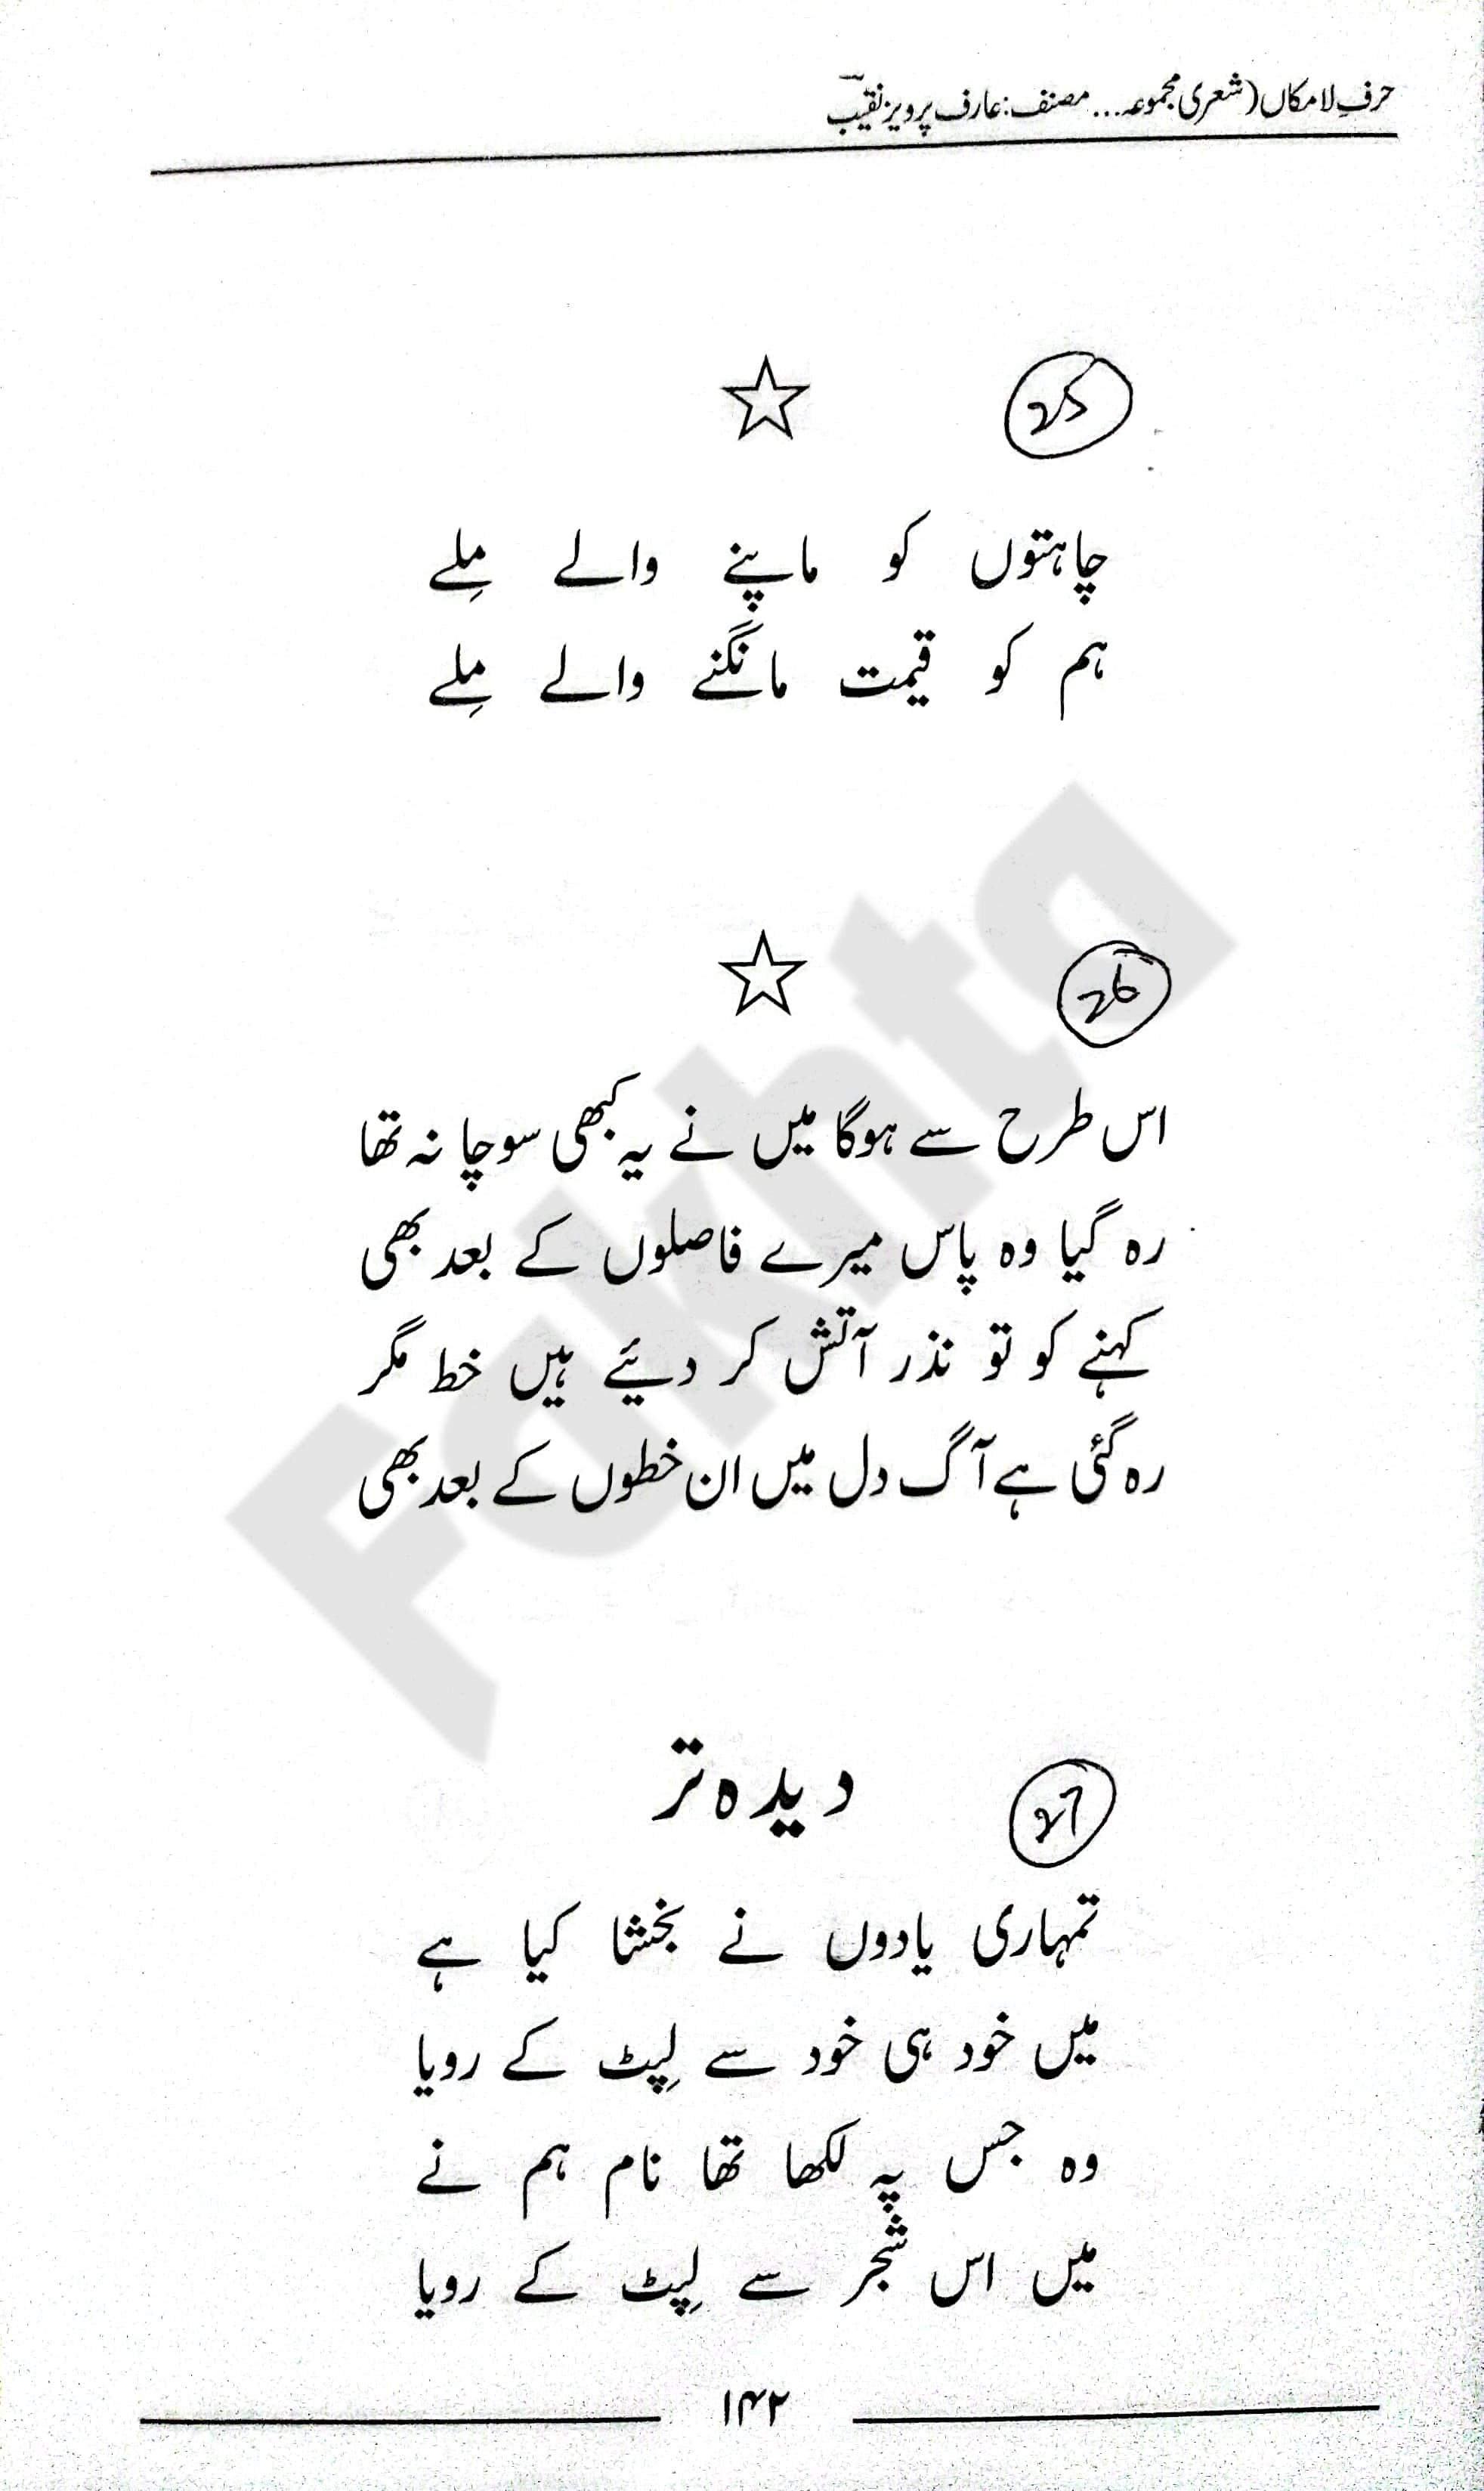 حرفِ لامکاں (شعری مجموعہ... مصنف: عارف پرویز نقیب
25
چاہتوں کو ماپنے والے مِلے
ہم کو قیمت مانگنے والے مِلے
26
اس طرح سے ہوگا میں نے یہ کبھی سوچا نہ تھا
رہ گیا وہ پاس میرے فاصلوں کے بعد بھی
کہنے کو تو نذر آتش کر دیئے ہیں خط مگر
رہ گئی ہے آگ دل میں ان خطوں کے بعد بھی
Fakhta
27
دیدہ تر
تمہاری یادوں نے بخشا کیا ہے
میں خود ہی خود سے لِپٹ کے رویا
وہ جس پہ لکھا تھا نام ہم نے
میں اس شجر سے لِپٹ کے رویا
۱۴۲